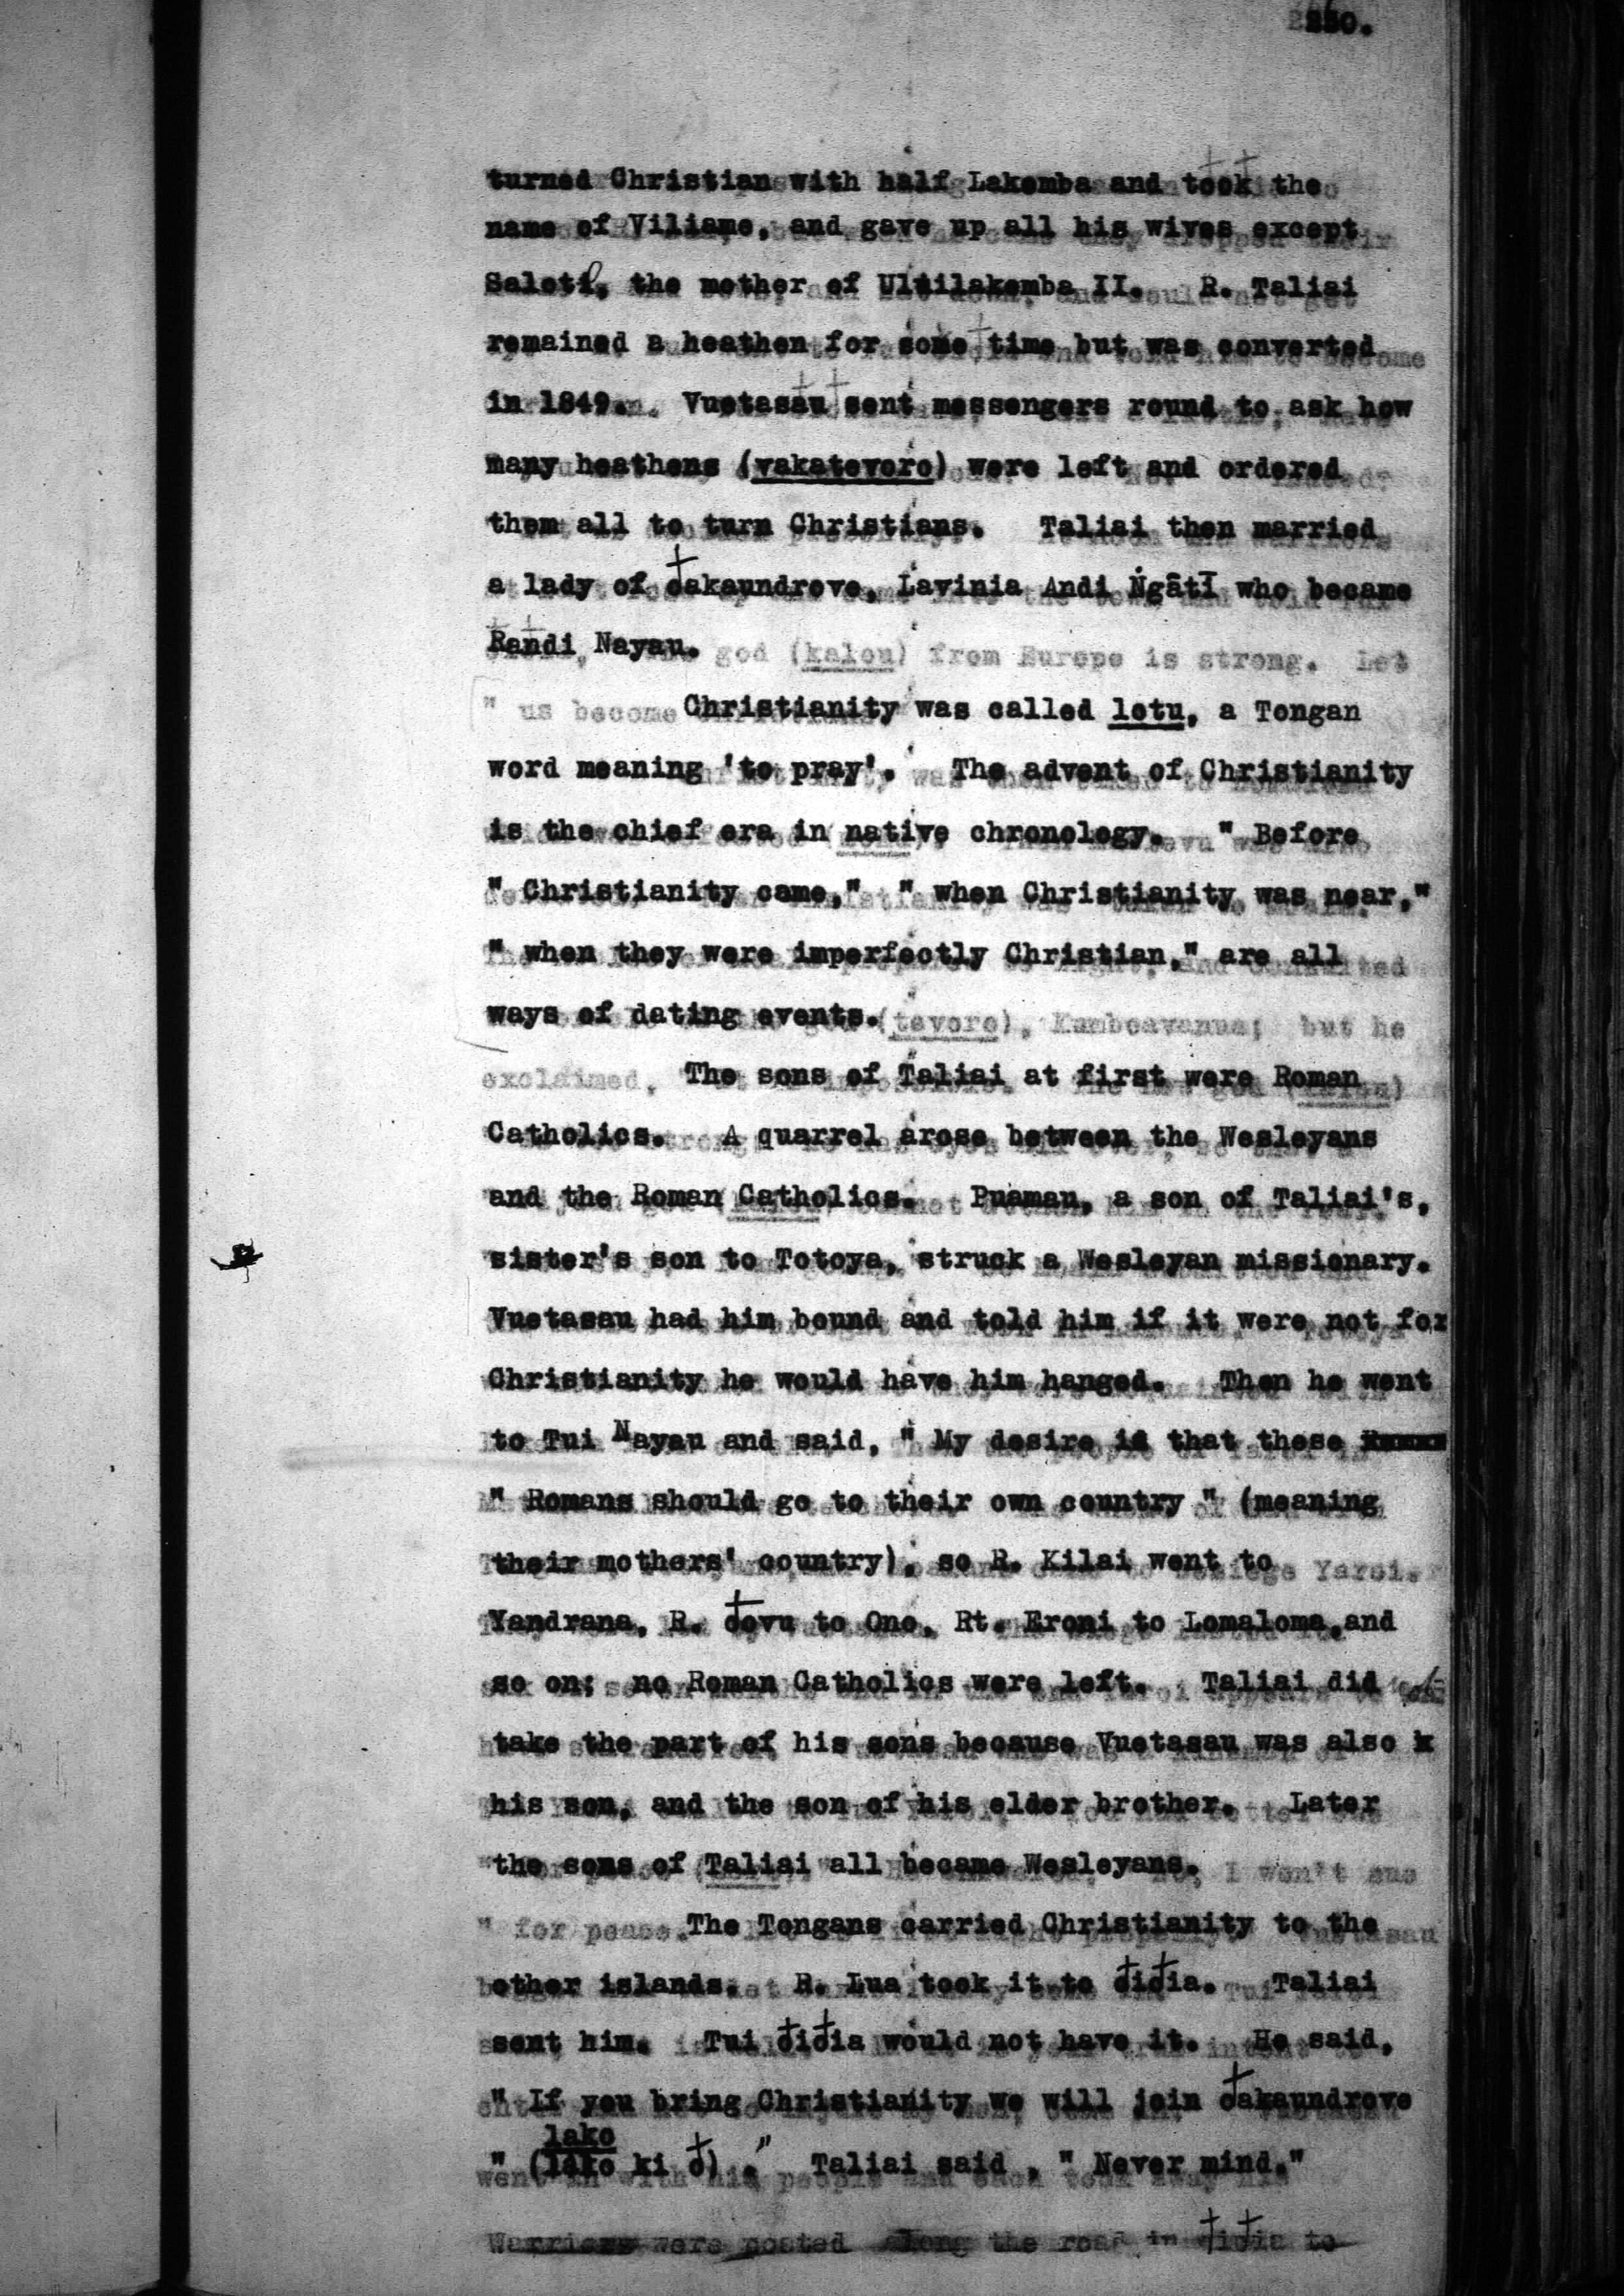 250.
turned Christian with half Lakemba and took the
name of Viliame, and gave up all his wives except
Saloti, the mother of Ulilakemba II. R. Taliai
remained a heathen for some time but was converted
in 1849. Vuetasau sent messengers round to ask how
many heathens (vakatevoro) were left and ordered
them all to turn Christians. Taliai then married
a lady of đakaundrove, Lavinia Andi Ṅgâtī who became
Randi Nayau.
god (kalou) from Europe is strong. Let
" us become
Christianity was called lotu, a Tongan
word meaning 'to pray'. The advent of Christianity
is the chief era in native chronology. " Before
" Christianity came," " when Christianity was near,"
" when they were imperfectly Christian," are all
ways of dating events.
(tevoro), but he
exclaimed.
The sons of Taliai at first were Roman
Catholics. A quarrel arose between the Wesleyans
and the Roman Catholics. Puaman, a son of Taliai's,
sister's son to Totoya, struck a Wesleyan missionary.
Vuetasau had him bound and told him if it were not for
Christianity he would have him hanged. Then he went
to Tui Nayau and said, " My desire is that these
" Romans should go to their own country " (meaning
their mothers' country), so R. Kilai went to
Yandrana, R. đovu to Ono, Rt. Eroni to Lomaloma,and
so on; no Roman Catholics were left. Taliai did
take the part of his sons because Vuetasau was also
his son, and the son of his elder brother. Later
the sons of Taliai all became Wesleyans.
I won't sue
" for peace.
The Tongans carried Christianity to the
other islands. R. Lua took it to điđia. Taliai
sent him. Tui điđia would not have it. He said,
" If you bring Christianity we will join đakaundrove
lako
" (lako ki đ) ." Taliai said , " Never mind."
Warriors were posted along the road in điđia to